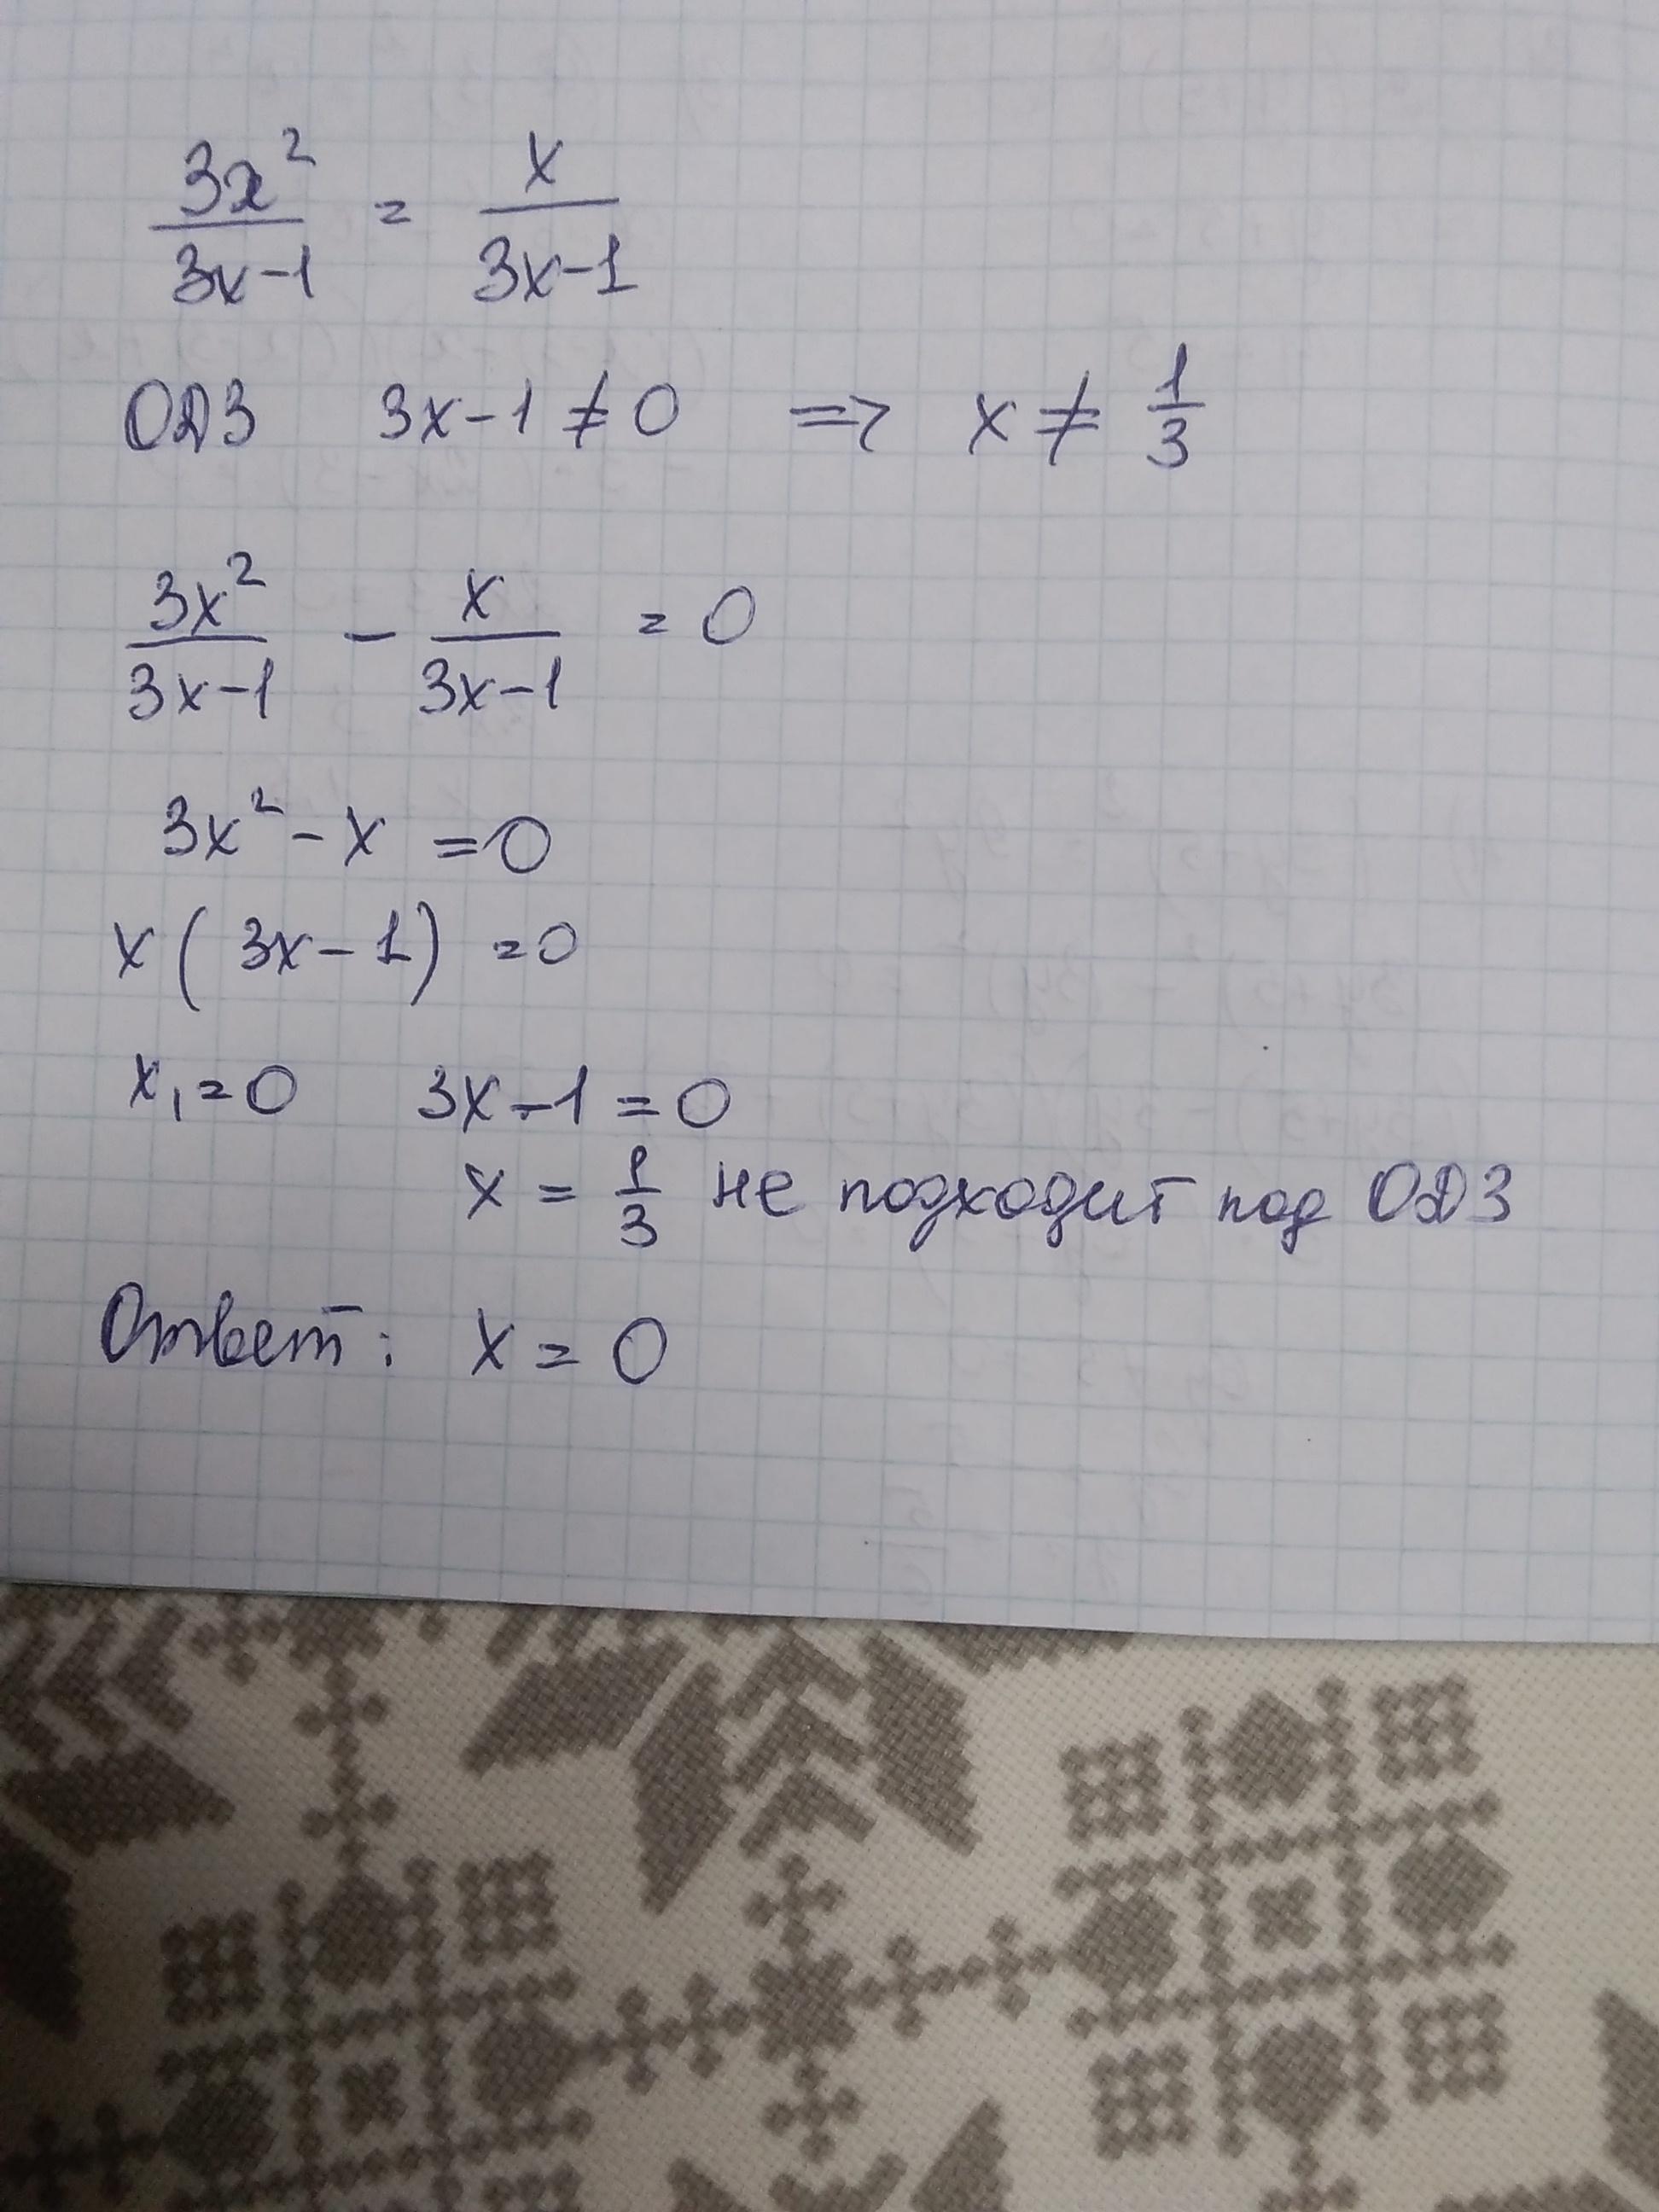 3x² / 3x-1 = x / 3x-1
ОДЗ 3x-1≠0 => x≠ 1/3
3x² / 3x-1 - x / 3x-1 = 0
3x²-x =0
x(3x-1) =0
x₁=0 3x-1=0
x = 1/3 не подходит под ОДЗ
Ответ: x = 0